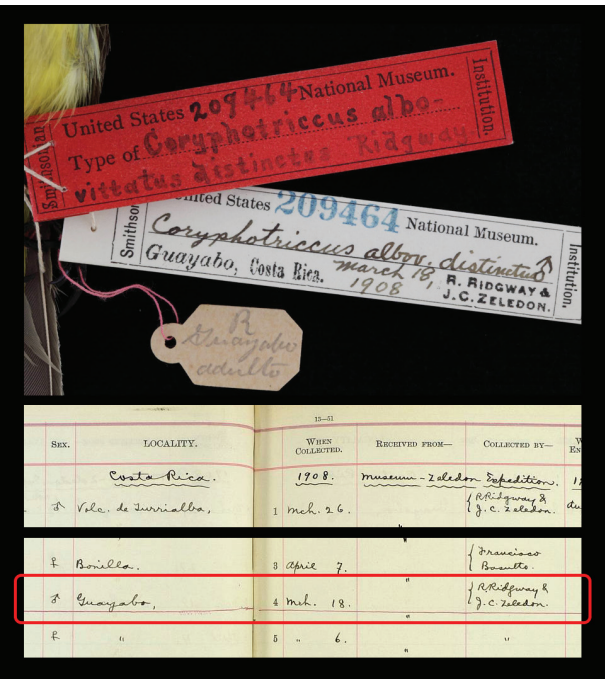 United States 209464 National Museum.
Type of Coryphotriccus albo-
vittatus distinctus Ridgway
Smithsonian
Institution.
United States 209464 National Museum.
Coryphotriccus albov. distinctus ♂
Guayabo, Costa Rica. March 18, 1908
R. RIDGWAY &
J. C. ZELEDON.
Smithson
Institution.
R
Guayabo
adulto
15—51
SEX. LOCALITY. WHEN COLLECTED. RECEIVED FROM— COLLECTED BY— W
EN
Costa Rica. 1908. Museum-Zeledon Expedition. 19
♂ Volc. de Turrialba, 1 Mch. 26. { R. Ridgway & J. C. Zeledon. du
♀ Bonilla. 3 April 7. " { Francisco Basulto.
♂ Guayabo, 4 Mch. 18. " { R. Ridgway & J. C. Zeledon.
♀ " 5 " 6. " "
"